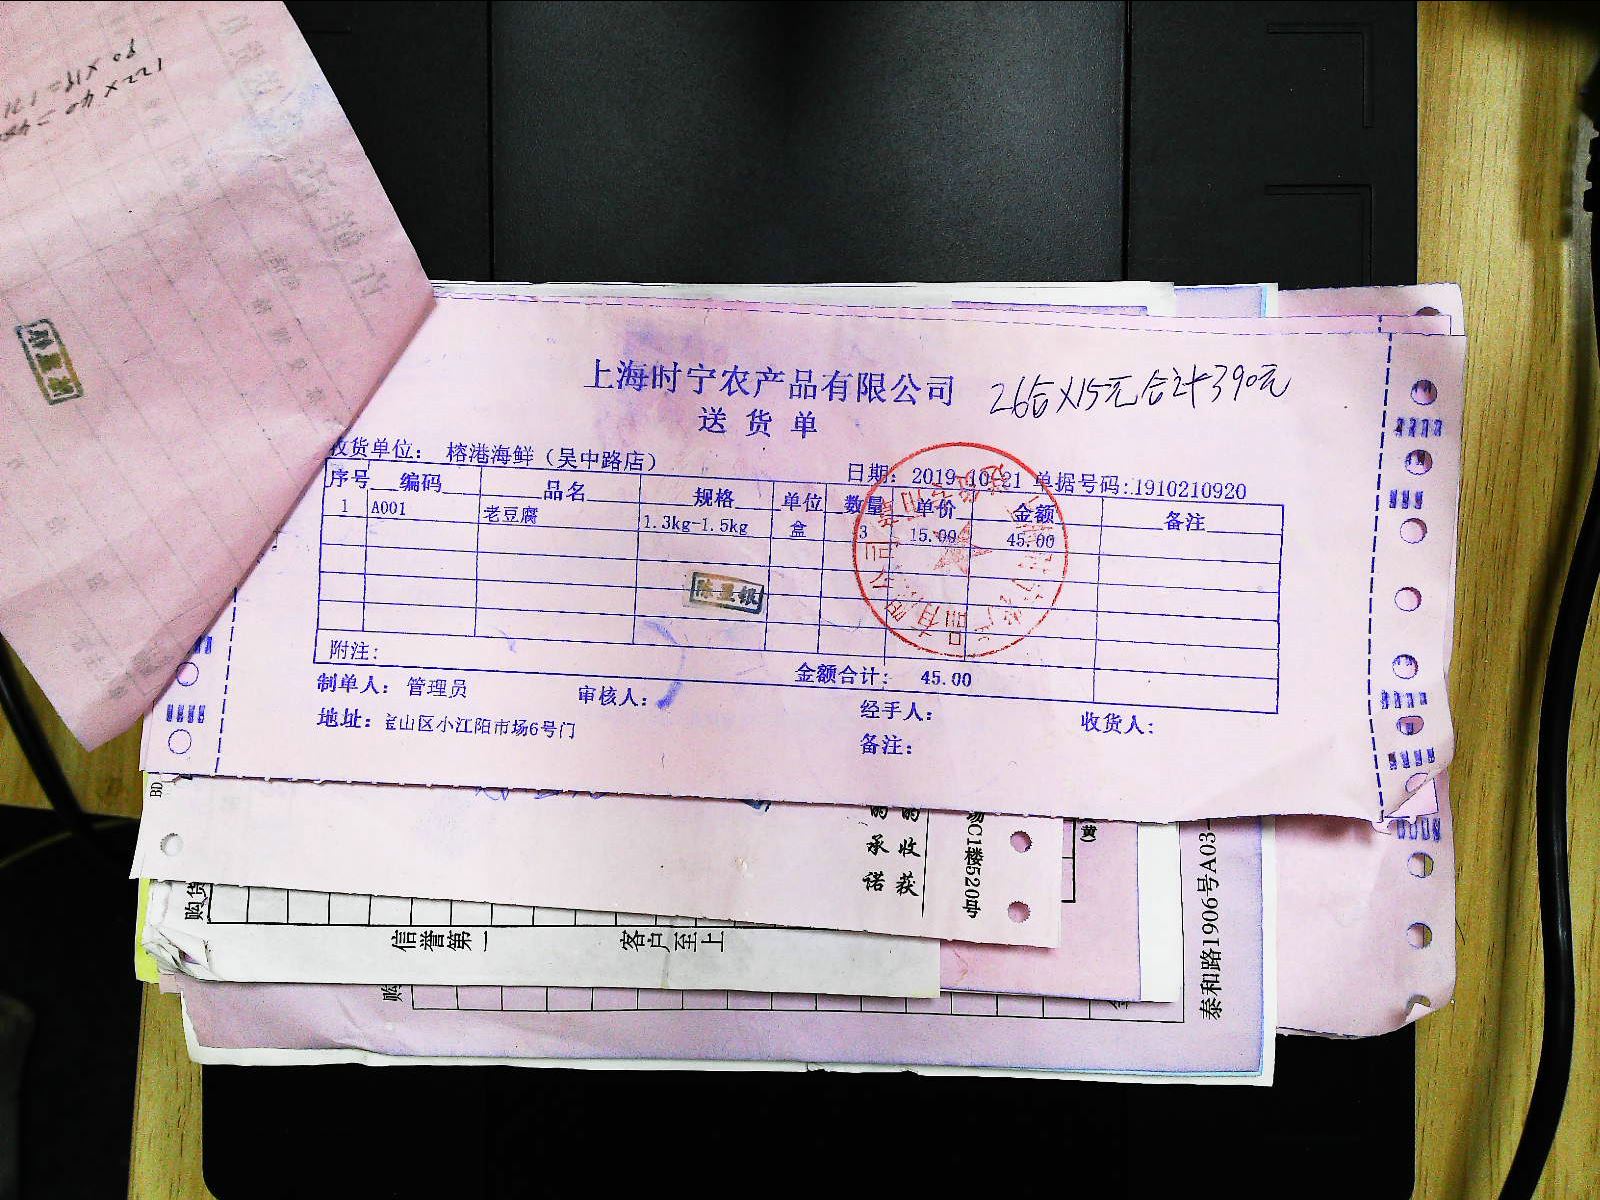 122×40=
上海时宁农产品有限公司
26合×15元合计390元
送货单
收货单位: 榕港海鲜(吴中路店)
日期: 2019-10-21 单据号码:1910210920
序号 编码 品名 规格 单位 数量 单价 金额 备注
1 A001 老豆腐 1.3kg-1.5kg 盒 3 15.00 45.00
附注:
金额合计: 45.00
制单人: 管理员 审核人: 经手人: 收货人:
地址: 宝山区小江阳市场6号门
备注:
BD
承诺
收获
场C1楼520号
(黄)
购货
信誉第一 客户至上
购
泰和路1906号A03-